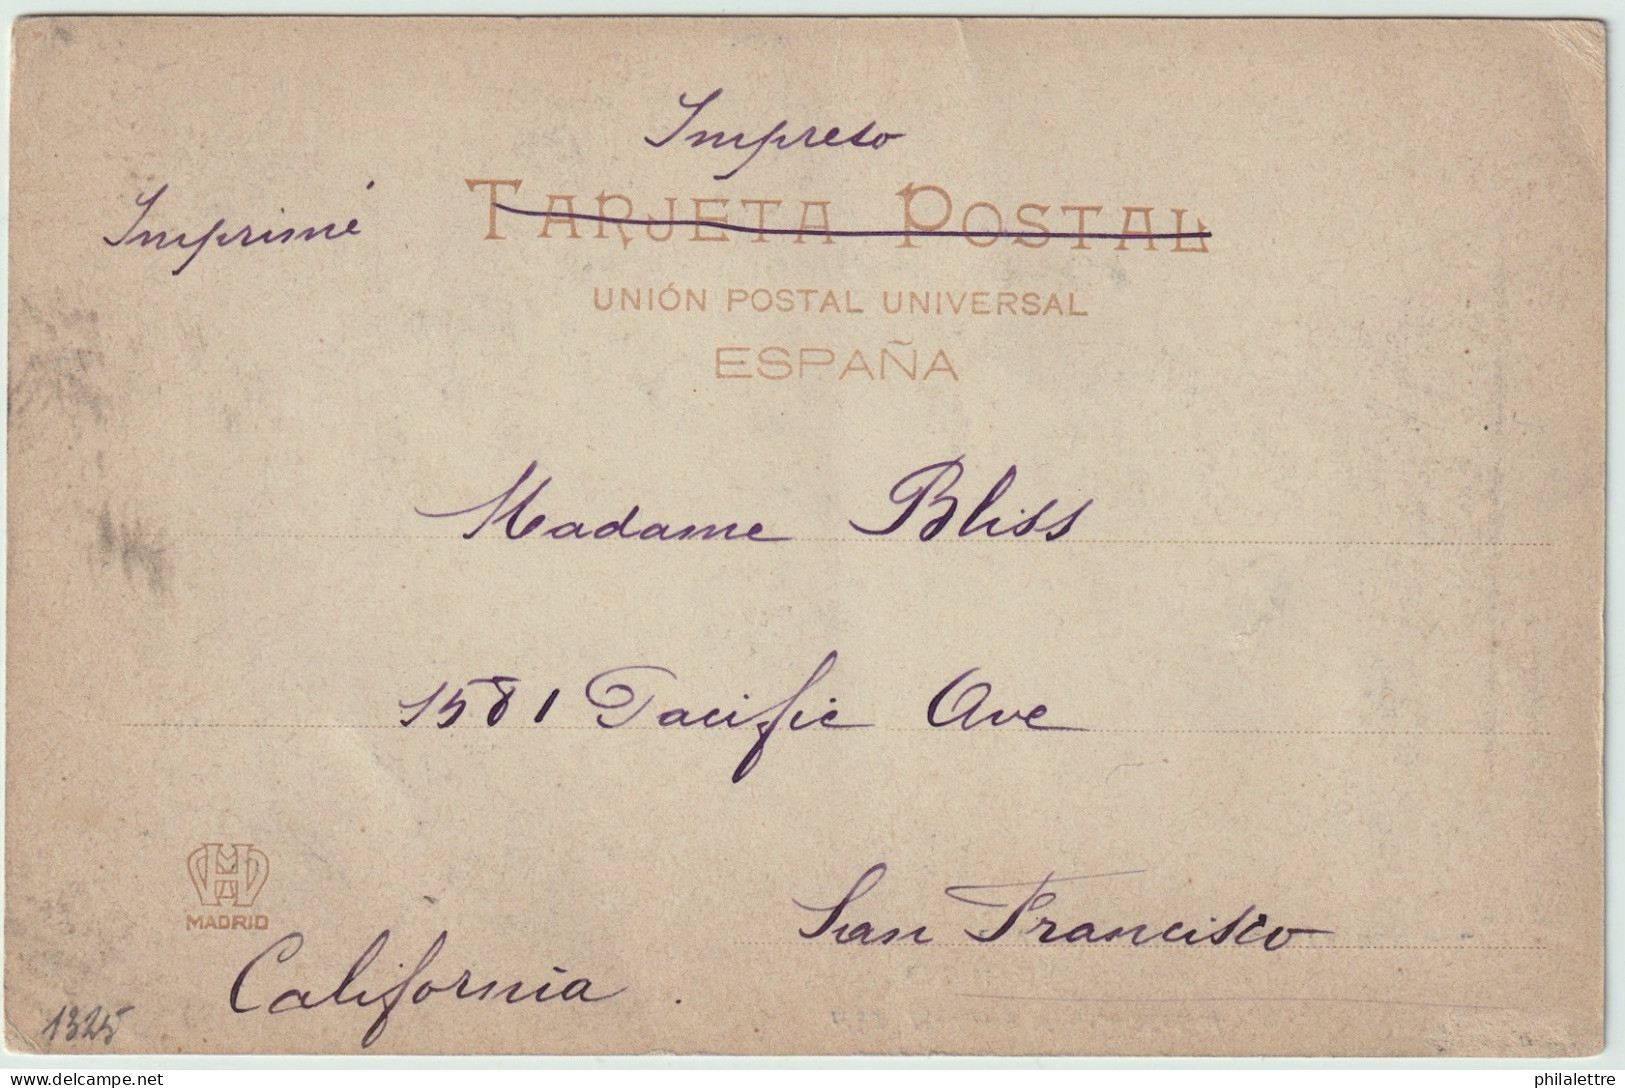 Impreso
Imprimé
TARJETA POSTAL
UNIÓN POSTAL UNIVERSAL
ESPAÑA
Madame Bliss
1581 Pacific Ave
San Francisco
California.
HM
MADRID
1325
www.delcampe.net
philalettre